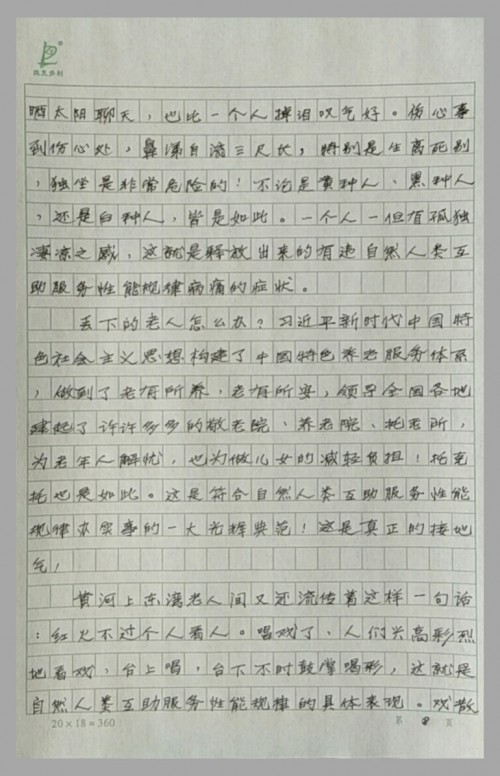 晒太阳聊天，也比一个人掉泪叹气好。伤心事
到伤心处，鼻涕自淌三尺长，特别是生离死别
，独坐是非常危险的！不论是黄种人、黑种人
，还是白种人，皆是如此。一个人一但有孤独
凄凉之感，这就是释放出来的有违自然人类互
助服务性能规律病痛的症状。
丢下的老人怎么办？习近平新时代中国特
色社会主义思想构建了中国特色养老服务体系
，做到了老有所养，老有所安，领导全国各地
建起了许许多多的敬老院、养老院、托老所，
为老年人解忧，也为做儿女的减轻负担！托克
托也是如此。这是符合自然人类互助服务性能
规律办实事的一大光辉典范！这是真正的接地
气！
黄河上东湾老人间又还流传着这样一句话
：红火不过个人看人。唱戏了，人们兴高彩烈
地看戏，台上唱，台下不时鼓掌喝彩，这就是
自然人类互助服务性能规律的具体表现。戏散
20×18=360
第 页